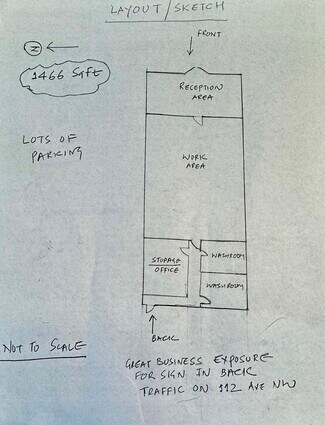 LAYOUT/SKETCH
FRONT
N
1466 Sqft
RECEPTION
AREA
LOTS OF
PARKING
WORK
AREA
STORAGE
OFFICE
WASHROOM
WASHROOM
BACK
NOT TO SCALE
GREAT BUSINESS EXPOSURE
FOR SIGN IN BACK
TRAFFIC ON 112 AVE NW